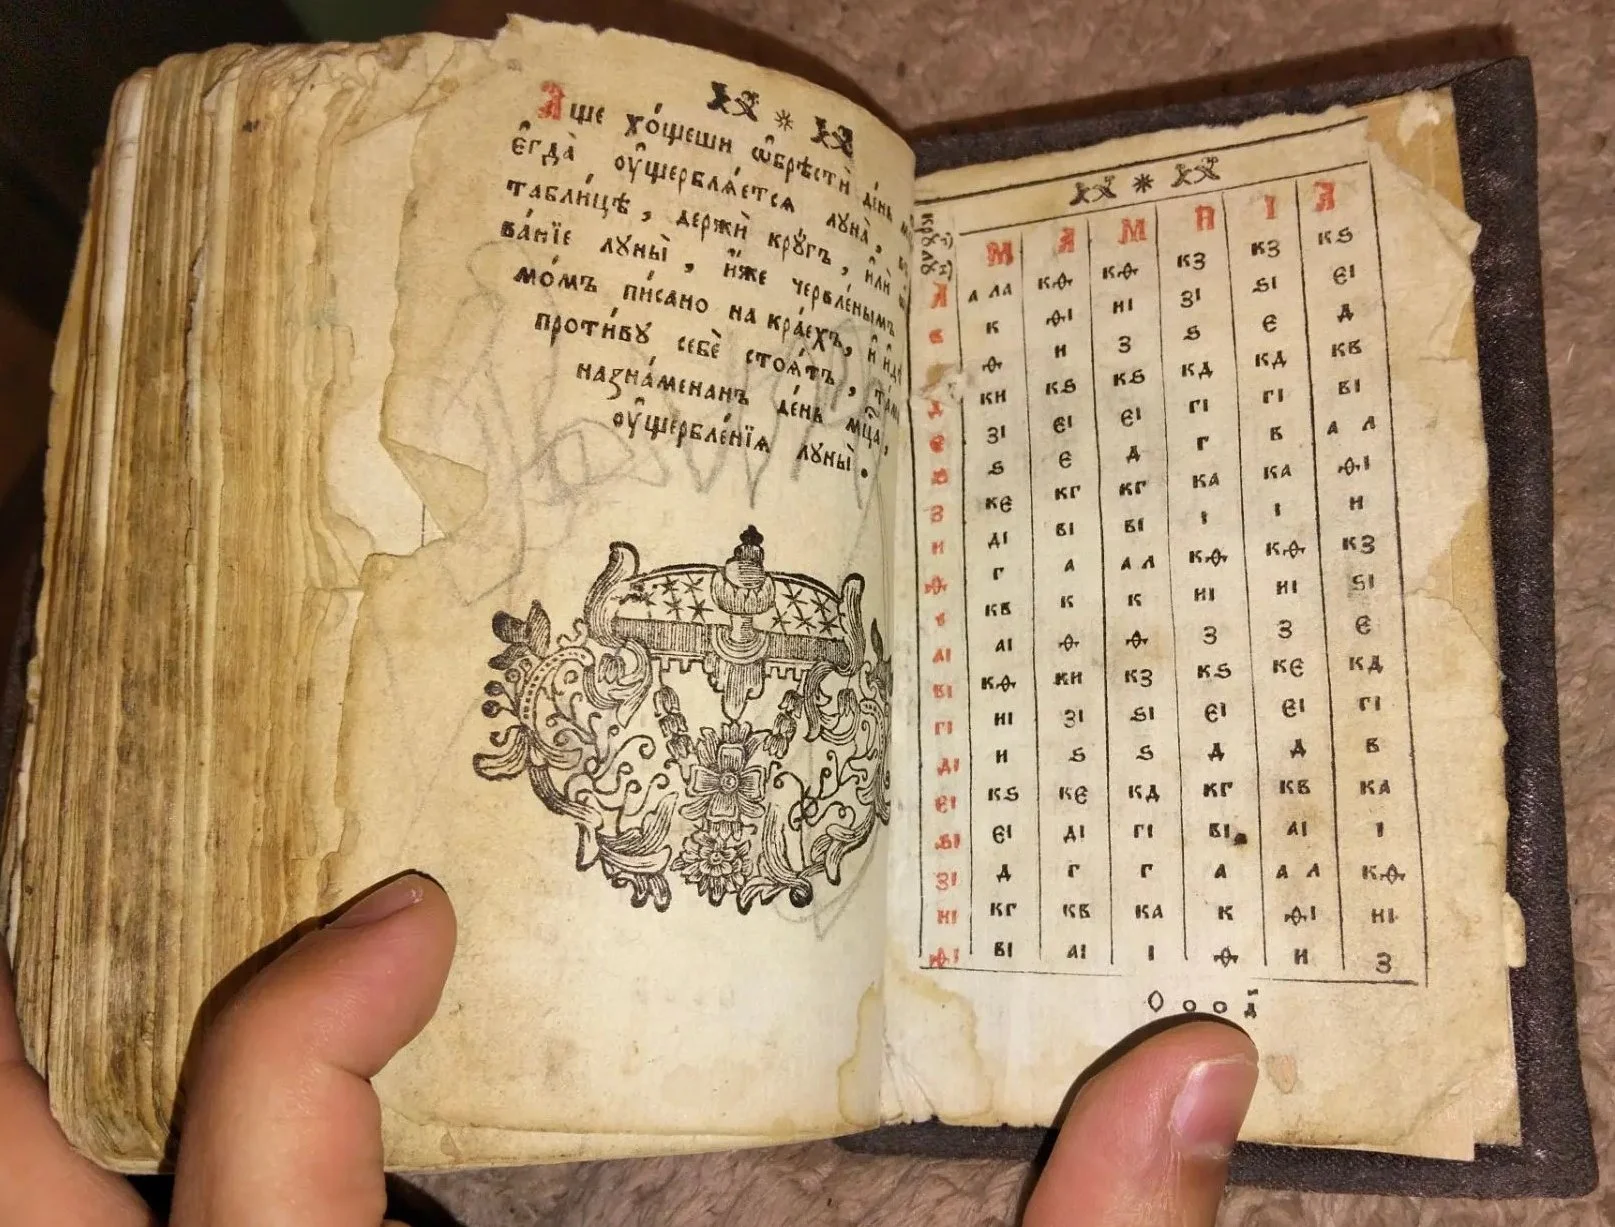 Аще хо́щеши ѡ҆брѣстѝ де́нь
є҆гда̀ ᲂу҆щербля́етсѧ лꙋна̀,
табли́цѣ, держѝ крꙋ́гъ, и҆лѝ
ва́нїе лꙋны̀, и҆́же червле́нымъ
мо́мъ пи́сано на кра́ехъ, и҆
проти́вꙋ себѐ стоѧ́тъ,
назна́менанъ де́нь мц҃а,
ᲂу҆щербле́нїѧ лꙋны̀.
М А М И І А
А а ла кѳ кѳ кз кз кѕ
в к ѳі иі зі ѕі єі
ѳ и з ѕ є д
Д ки кѕ кѕ кд кд кв
є зі єі єі гі гі ві
ѕ ѕ є д г в а л
з кє кг кг ка ка ѳі
и ді ві ві і і и
ѳ г а а л кѳ кѳ кз
і кв к к иі иі ѕі
аі аі ѳ ѳ з з є
ві кѳ ки кз кѕ кє кд
гі иі зі ѕі єі єі гі
ді и ѕ ѕ д д в
єі кѕ кє кд кг кв ка
ѕі єі ді гі ві аі і
зі д г г а а л кѳ
иі кг кв ка к ѳі иі
ѳі ві аі і ѳ и з